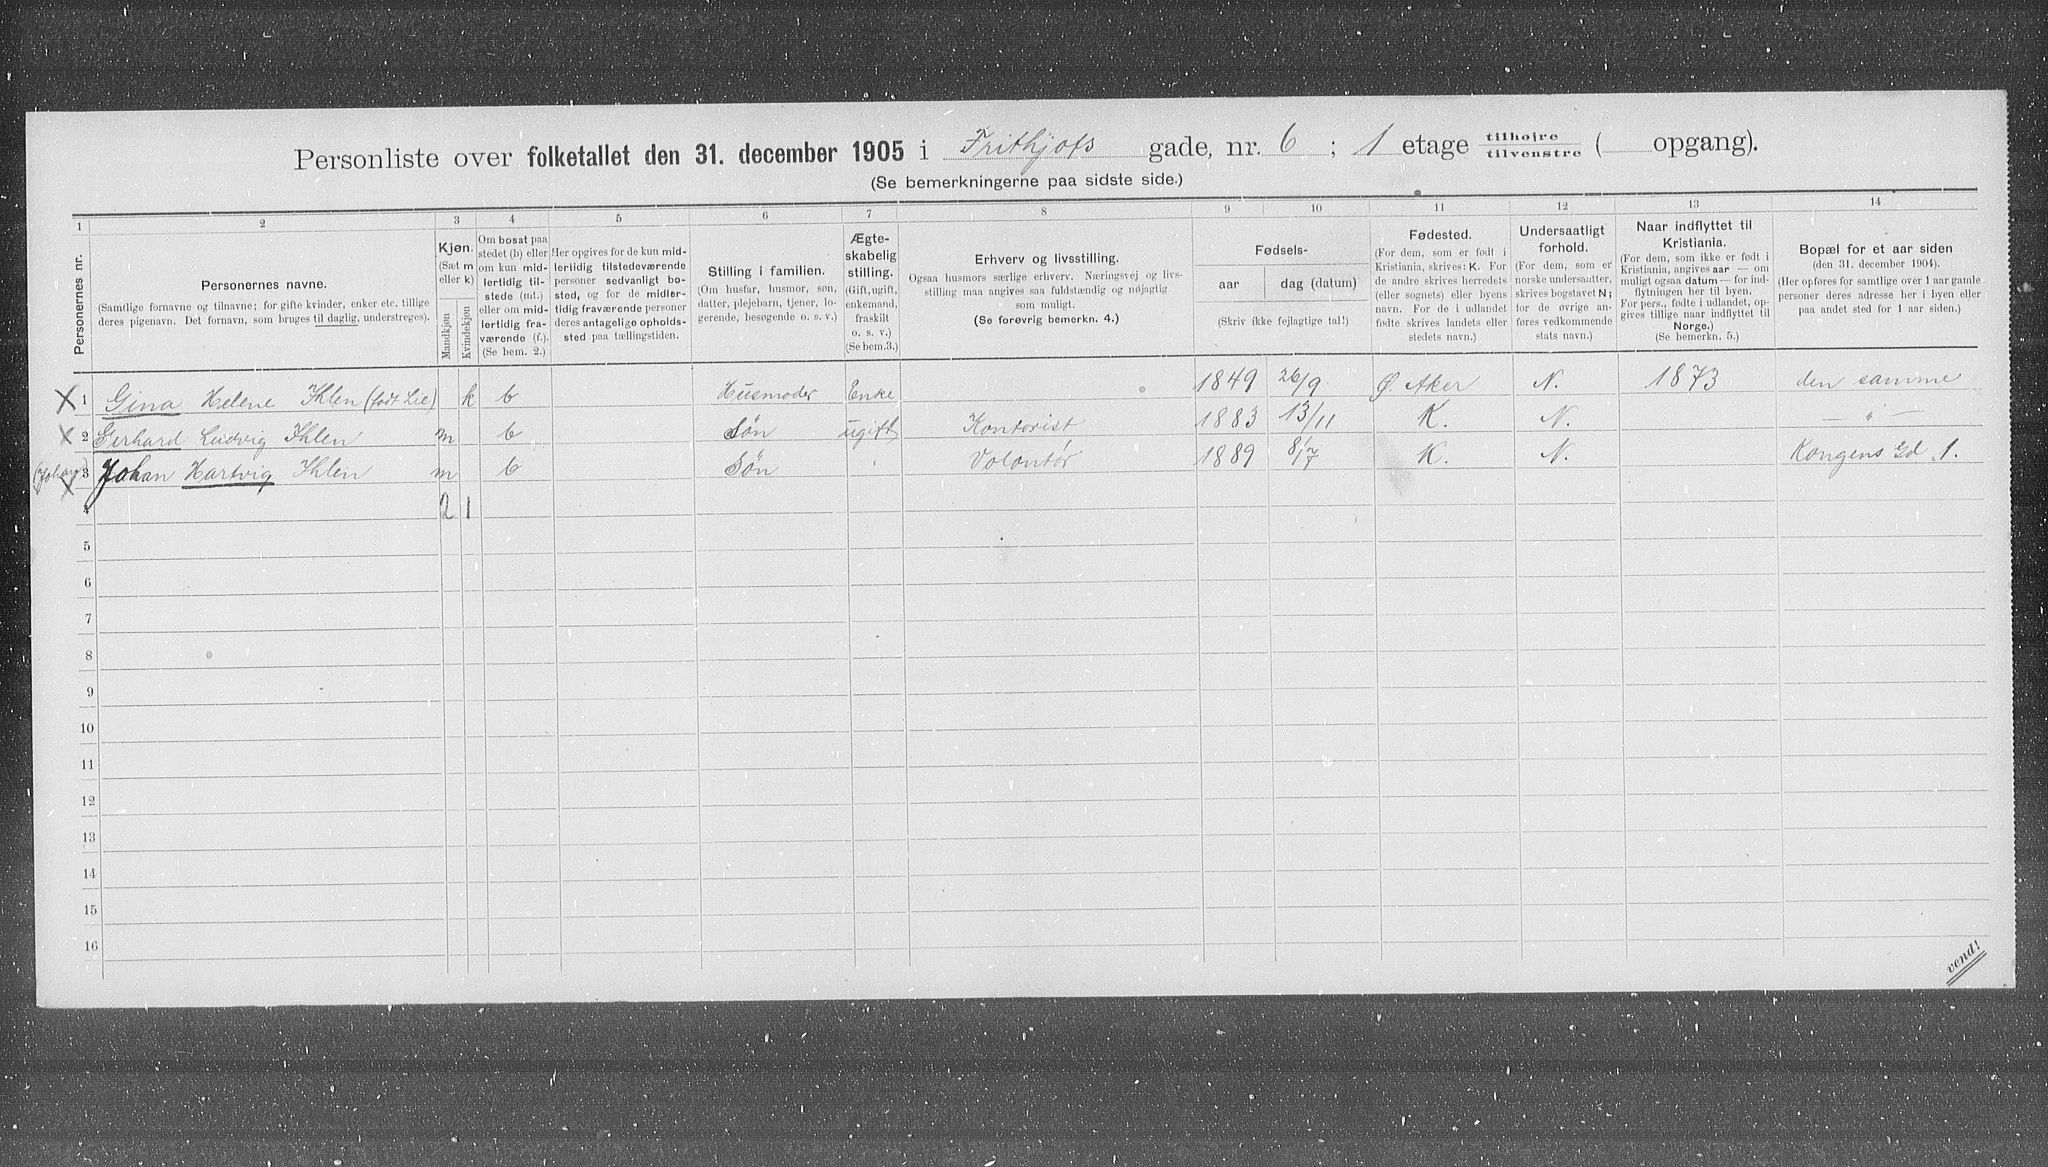 Personliste over folketallet den 31. december 1905 i Frithjofs gade, nr. 6 ; 1 etage tilhøire / tilvenstre ( opgang).
(Se bemerkningerne paa sidste side.)
1 2 3 4 5 6 7 8 9 10 11 12 13 14
Personernes nr.
Personernes navne.
(Samtlige fornavne og tilnavne; for gifte kvinder, enker etc. tillige
deres pigenavn. Det fornavn, som bruges til daglig, understreges).
Kjøn.
(Sæt m
eller k)
Mandkjøn
Kvindekjøn
Om bosat paa
stedet (b) eller
om kun mid-
lertidig til-
stede (mt.)
eller om mid-
lertidig fra-
værende (f.).
(Se bem. 2.)
Her opgives for de kun mid-
lertidig tilstedeværende
personer sedvanligt bo-
sted, og for de midler-
tidig fraværende personer
deres antagelige opholds-
sted paa tællingstiden.
Stilling i familien.
(Om husfar, husmor, søn,
datter, plejebarn, tjener, lo-
gerende, besøgende o. s. v.)
Ægte-
skabelig
stilling.
(Gift, ugift,
enkemand,
fraskilt
o. s. v.)
(Se bem.3.)
Erhverv og livsstilling.
Ogsaa husmors særlige erhverv. Næringsvej og livs-
stilling maa angives saa fuldstændig og nøjagtig
som muligt.
(Se forøvrig bemerkn. 4.)
Fødsels-
aar
dag (datum)
(Skriv ikke fejlagtige tal!)
Fødested.
(For dem, som er født i
Kristiania, skrives: K. For
de andre skrives herredets
(eller sognets) eller byens
navn. For de i udlandet
fødte skrives landets eller
stedets navn.)
Undersaatligt
forhold.
(For dem, som er
norske undersaatter,
skrives bogstavet N;
for de øvrige an-
føres vedkommende
stats navn.)
Naar indflyttet til
Kristiania.
(For dem, som ikke er født i
Kristiania, angives aar — om
muligt ogsaa datum — for ind-
flytningen her til byen.
For pers., fødte i udlandet, op-
gives tillige naar indflyttet til
Norge.)
(Se bemerkn. 5.)
Bopæl for et aar siden
(den 31. december 1904).
(Her opføres for samtlige over 1 aar gamle
personer deres adresse her i byen eller
paa andet sted for 1 aar siden.)
X 1 Gina Helene Ihlen (født Lie) k b Husmoder Enke 1849 26/9 Ø. Aker N. 1873 den samme
X 2 Gerhard Ludvig Ihlen m b Søn ugift Kontorist 1883 13/11 K. N. — " —
(Johan) X 3 Johan Hartvig Ihlen m b Søn " Volontør 1889 8/7 K. N. Kongens Gd 1.
4 2 1
5
6
7
8
9
10
11
12
13
14
15
16
vend!